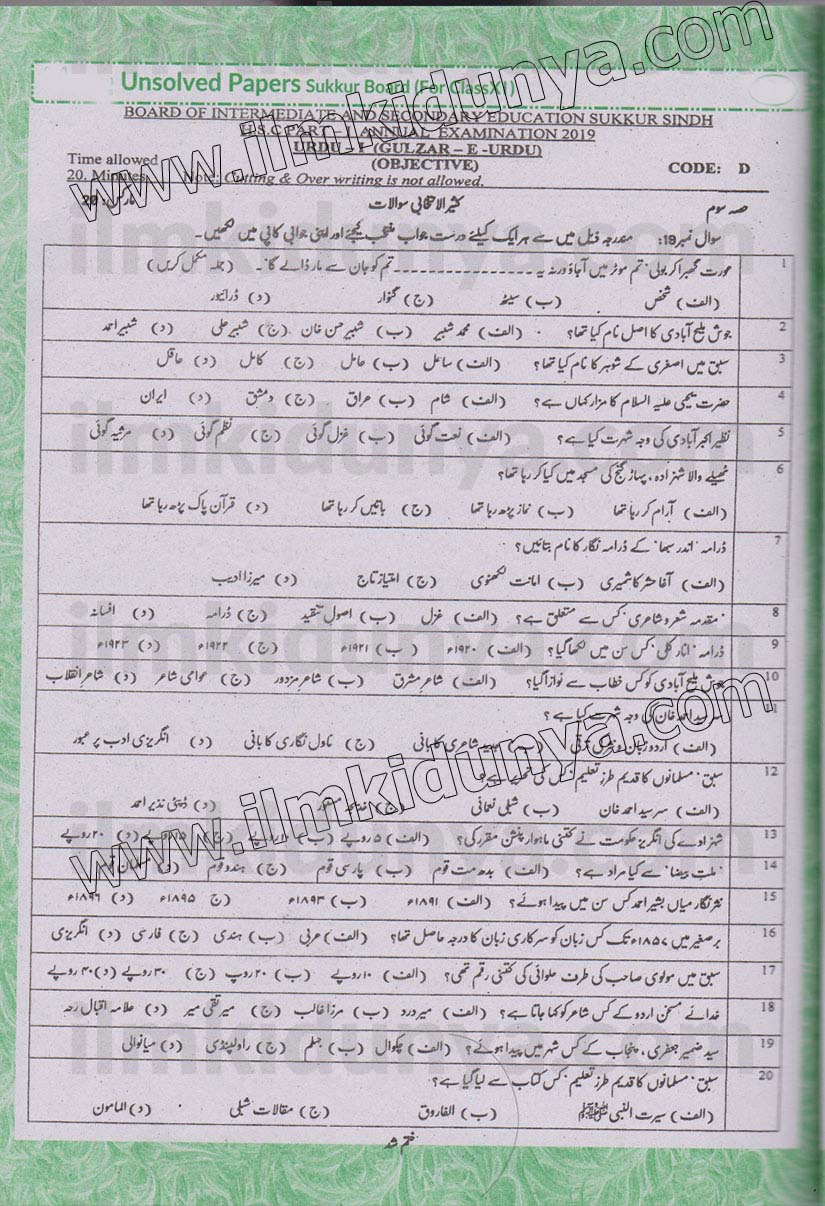 Unsolved Papers Sukkur Board (For ClassXI)
BOARD OF INTERMEDIATE AND SECONDARY EDUCATION SUKKUR SINDH
H.S.C PART – I ANNUAL EXAMINATION 2019
URDU – I (GULZAR – E -URDU)
(OBJECTIVE)
Time allowed
CODE: D
20. Minutes Note: Cutting & Over writing is not allowed.
حصہ سوم کثیر الانتخابی سوالات مارکس: 20
سوال نمبر 19: مندرجہ ذیل میں سے ہر ایک کیلئے درست جواب منتخب کیجئے اور اپنی جوابی کاپی میں لکھیں۔
1 عورت گھبرا کر بولی 'تم موٹر میں آجاؤ ورنہ یہ ---------------- تم کو جان سے مار ڈالے گا'۔ (جملہ مکمل کریں)
(الف) شخص (ب) سیٹھ (ج) گنوار (د) ڈرائیور
2 جوش ملیح آبادی کا اصل نام کیا تھا؟ (الف) محمد شبیر (ب) شبیر حسن خان (ج) شبیر علی (د) شبیر احمد
3 سبق میں اصغری کے شوہر کا نام کیا تھا؟ (الف) سائل (ب) عامل (ج) کامل (د) عاقل
4 حضرت یحییٰ علیہ السلام کا مزار کہاں ہے؟ (الف) شام (ب) عراق (ج) دمشق (د) ایران
5 نظیر اکبر آبادی کی وجہ شہرت کیا ہے؟ (الف) نعت گوئی (ب) غزل گوئی (ج) نظم گوئی (د) مرثیہ گوئی
6 ٹھیلے والا شہزادہ، پہاڑ گنج کی مسجد میں کیا کر رہا تھا؟
(الف) آرام کر رہا تھا (ب) نماز پڑھ رہا تھا (ج) باتیں کر رہا تھا (د) قرآن پاک پڑھ رہا تھا
7 ڈرامہ 'اندر سبھا' کے ڈرامہ نگار کا نام بتائیں؟
(الف) آغا حشر کاشمیری (ب) امانت لکھنوی (ج) امتیاز تاج (د) میرزا ادیب
8 'مقدمہ شعر و شاعری' کس سے متعلق ہے؟ (الف) غزل (ب) اصول تنقید (ج) ڈرامہ (د) افسانہ
9 ڈرامہ 'انار کلی' کس سن میں لکھا گیا؟ (الف) ۱۹۲۰ء (ب) ۱۹۲۱ء (ج) ۱۹۲۲ء (د) ۱۹۲۳ء
10 جوش ملیح آبادی کو کس خطاب سے نوازا گیا؟ (الف) شاعر مشرق (ب) شاعر مزدور (ج) عوامی شاعر (د) شاعر انقلاب
11 سر سید احمد خان کی وجہ شہرت کیا ہے؟
(الف) اردو زبان و ترقی (ب) جدید شاعری کا بانی (ج) ناول نگاری کا بانی (د) انگریزی ادب پر عبور
12 سبق 'مسلمانوں کا قدیم طرز تعلیم' کس کی تحریر ہے؟
(الف) سر سید احمد خان (ب) شبلی نعمانی (ج) خدیجہ مستور (د) ڈپٹی نذیر احمد
13 شہزادے کی انگریز حکومت نے کتنی ماہوار پنشن مقرر کی؟ (الف) ۵ روپے (ب) ۱۰ روپے (ج) ۱۵ روپے (د) ۲۰ روپے
14 'ملت بیضا' سے کیا مراد ہے؟ (الف) بدھ مت قوم (ب) پارسی قوم (ج) ہندو قوم (د) مسلمان قوم
15 نثر نگار میاں بشیر احمد کس سن میں پیدا ہوئے؟ (الف) ۱۸۹۱ء (ب) ۱۸۹۳ء (ج) ۱۸۹۵ء (د) ۱۸۹۶ء
16 برصغیر میں ۱۸۵۷ء تک کس زبان کو سرکاری زبان کا درجہ حاصل تھا؟ (الف) عربی (ب) ہندی (ج) فارسی (د) انگریزی
17 سبق میں مولوی صاحب کی طرف حلوائی کی کتنی رقم تھی؟ (الف) ۱۰ روپے (ب) ۲۰ روپے (ج) ۳۰ روپے (د) ۴۰ روپے
18 خدائے سخن اردو کے کس شاعر کو کہا جاتا ہے؟ (الف) میر درد (ب) مرزا غالب (ج) میر تقی میر (د) علامہ اقبال رحہ
19 سید ضمیر جعفری، پنجاب کے کس شہر میں پیدا ہوئے؟ (الف) چکوال (ب) جہلم (ج) راولپنڈی (د) میانوالی
20 سبق 'مسلمانوں کا قدیم طرز تعلیم' کس کتاب سے لیا گیا ہے؟
(الف) سیرت النبی ﷺ (ب) الفاروق (ج) مقالات شبلی (د) المامون
ختم شد
www.ilmkidunya.com
www.ilmkidunya.com
ilmkidunya.com
ilmkidunya.com
ilmkidunya.com
ilmkidunya.com
ilmkidunya.com
ilmkidunya.com